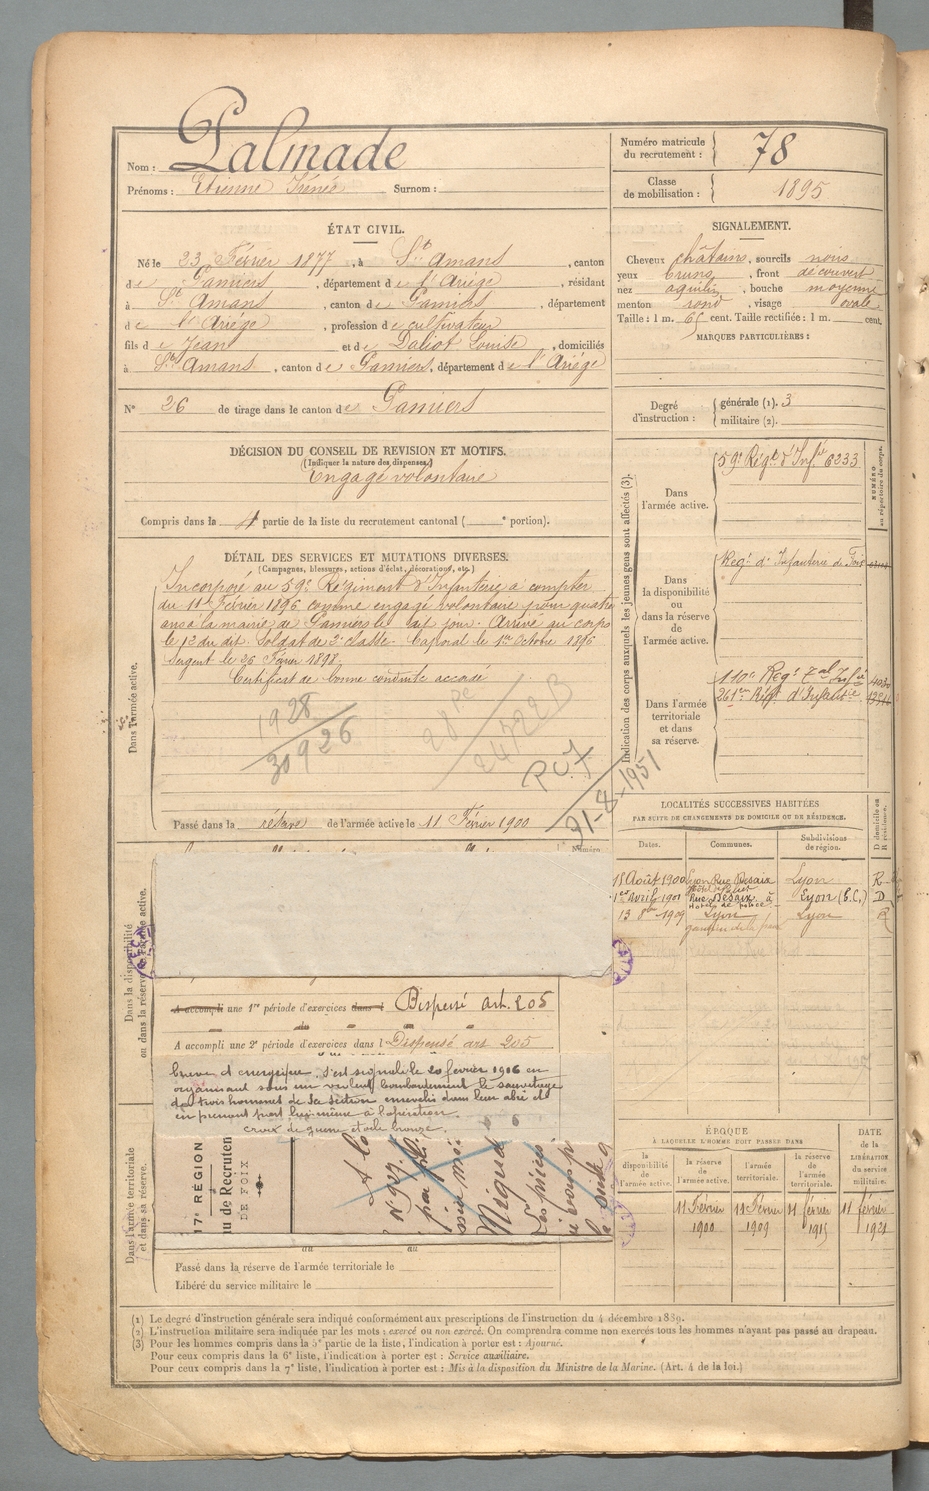 Nom : Palmade
Prénoms : Etienne Irénée Surnom :
Numéro matricule du recrutement : 78
Classe de mobilisation : 1895
ÉTAT CIVIL.
Né le 23 Février 1877, à St Amans, canton
de Pamiers, département de l'Ariège, résidant
à St Amans, canton de Pamiers, département
de l'Ariège, profession de cultivateur
fils de Jean et de Daliot Louise, domiciliés
à St Amans, canton de Pamiers, département de l'Ariège
N° 26 de tirage dans le canton de Pamiers
SIGNALEMENT.
Cheveux châtains, sourcils noirs
yeux bruns, front découvert
nez aquilin, bouche moyenne
menton rond, visage ovale
Taille : 1 m. 65 cent. Taille rectifiée : 1 m. cent.
MARQUES PARTICULIÈRES :
Degré d'instruction : générale (1). 3
militaire (2).
DÉCISION DU CONSEIL DE REVISION ET MOTIFS.
(Indiquer la nature des dispenses.)
Engagé volontaire
Compris dans la 4e partie de la liste du recrutement cantonal ( e portion).
DÉTAIL DES SERVICES ET MUTATIONS DIVERSES.
(Campagnes, blessures, actions d'éclat, décorations, etc.)
Dans l'armée active.
Incorporé au 59e Régiment d'Infanterie à compter
du 11 Février 1896 comme engagé volontaire pour quatre
ans à la mairie de Pamiers le dit jour. Arrivé au corps
le 12 du dit. Soldat de 2e classe. Caporal le 1er Octobre 1896
Sergent le 26 Février 1898.
Certificat de bonne conduite accordé
1928
30926
28 Pe
24722B
RCF
21-8-1951
Passé dans la réserve de l'armée active le 11 Février 1900
Indication des corps auxquels les jeunes gens sont affectés (3).
NUMÉRO au répertoire du corps.
Dans l'armée active.
59e Régt d'Infie 6233
Dans la disponibilité ou dans la réserve de l'armée active.
Régt d'Infanterie de Foix
Dans l'armée territoriale et dans sa réserve.
110e Régt Tal Infie 4030
261em Régt d'Infanterie
LOCALITÉS SUCCESSIVES HABITÉES
PAR SUITE DE CHANGEMENTS DE DOMICILE OU DE RÉSIDENCE.
Dates. Communes. Subdivisions de région. D domicile ou R résidence.
15 Août 1900 Lyon Rue Desaix Lyon R
1er Avril 1901 Rue Desaix à Hôtel de police Lyon (B.C.) D
13 8bre 1909 Lyon Lyon R
gardien de la paix
Dans la disponibilité ou dans la réserve de l'armée active.
Numéro
A accompli une 1re période d'exercices dans l Dispensé art. 205
A accompli une 2e période d'exercices dans l Dispensé art 205
brave et énergique. S'est signalé le 20 février 1916 en
organisant sous un violent bombardement le sauvetage
de trois hommes de sa section ensevelis dans leur abri et
en prenant part lui-même à l'opération.
croix de guerre étoile bronze.
17e RÉGION
au de Recrutem
DE FOIX
Dans l'armée territoriale et dans sa réserve.
Passé dans la réserve de l'armée territoriale le
Libéré du service militaire le
ÉPOQUE
À LAQUELLE L'HOMME DOIT PASSER DANS
la disponibilité de l'armée active.
la réserve de l'armée active.
l'armée territoriale.
la réserve de l'armée territoriale.
DATE de la LIBÉRATION du service militaire.
11 Février 1900
11 Février 1909
11 février 1915
11 février 1921
(1) Le degré d'instruction générale sera indiqué conformément aux prescriptions de l'instruction du 4 décembre 1889.
(2) L'instruction militaire sera indiquée par les mots : exercé ou non exercé. On comprendra comme non exercés tous les hommes n'ayant pas passé au drapeau.
(3) Pour les hommes compris dans la 5e partie de la liste, l'indication à porter est : Ajourné.
Pour ceux compris dans la 6e liste, l'indication à porter est : Service auxiliaire.
Pour ceux compris dans la 7e liste, l'indication à porter est : Mis à la disposition du Ministre de la Marine. (Art. 4 de la loi.)